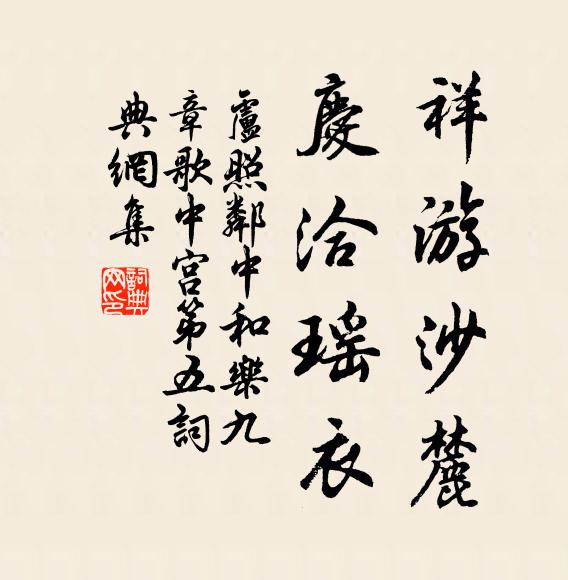 祥游沙麓
慶洽瑶衣
盧照鄰中和樂九
章歌中宮第五詞
典網集
詞典
网印